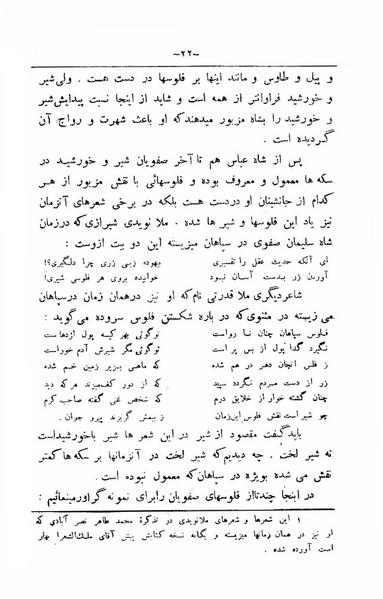 -۲۲-
و پیل و طاوس و مانند اینها بر فلوسها در دست هست . ولی شیر
و خورشید فراوانتر از همه است و شاید از اینجا نسبت پیدایش شیر
و خورشید را بشاه مزبور میدهند که او باعث شهرت و رواج آن
گردیده است .
پس از شاه عباس هم تا آخر صفویان شیر و خورشید در
سکه ها معمول و معروف بوده و فلوسهائی با نقش مزبور از هر
کدام از جانشینان او در دست هست بلکه در برخی شعرهای آنزمان
نیز یاد این فلوسها و شیر ها شده . ملا نویدی شیرازی که در زمان
شاه سلیمان صفوی در سپاهان میزیسته این دو بیت ازوست :
ای آنکه حدیث عقل را تفسیری بیهوده زبی زری چرا دلگیری؟!
آوردن زر بدست آسان نبود خوابیده بروی هر فلوسی شیری!
شاعر دیگری ملا قدرتی نام که او نیز در همان زمان در سپاهان
می زیسته در مثنوی که در باره شکستن فلوس سروده می‌گوید :
فلوس سپاهان چنان نا رواست توگوئی بهر کیسه پول اژدهاست
نگیرد گدا پول از بس پر است توگوئی مگر شیرش آدم خور است
ز فلس آنچان دهر در هم شده که ماهی بزیر زمین خم شده
زر از دست مردم نگردد سپید که از دور کف میزند هر که دید
چنان گشته خوار از خلایق درم که شخص غنی گفته صاحب کرم
چو شیر است نقش فلوس این زمان ز بیمش گریزند پیر و جوان .
باید گفت مقصود از شیر در این شعر ها شیر با خورشید است
نه شیر لخت . چه دیدیم که شیر لخت در آنزمانها بر سکه ها کمتر
نقش می شده بویژه در سپاهان که معمول نبوده است .
در اینجا چند تا از فلوسهای صفویان را برای نمونه گراور مینمائیم :
۱ این شعرها و شعرهای ملا نویدی در تذکرهٔ محمد طاهر نصر آبادی که
او نیز در همان زمانها میزیسته و یگانه نسخه کتابش پیش آقای ملک‌الشعرا بهار
است آورده شده .